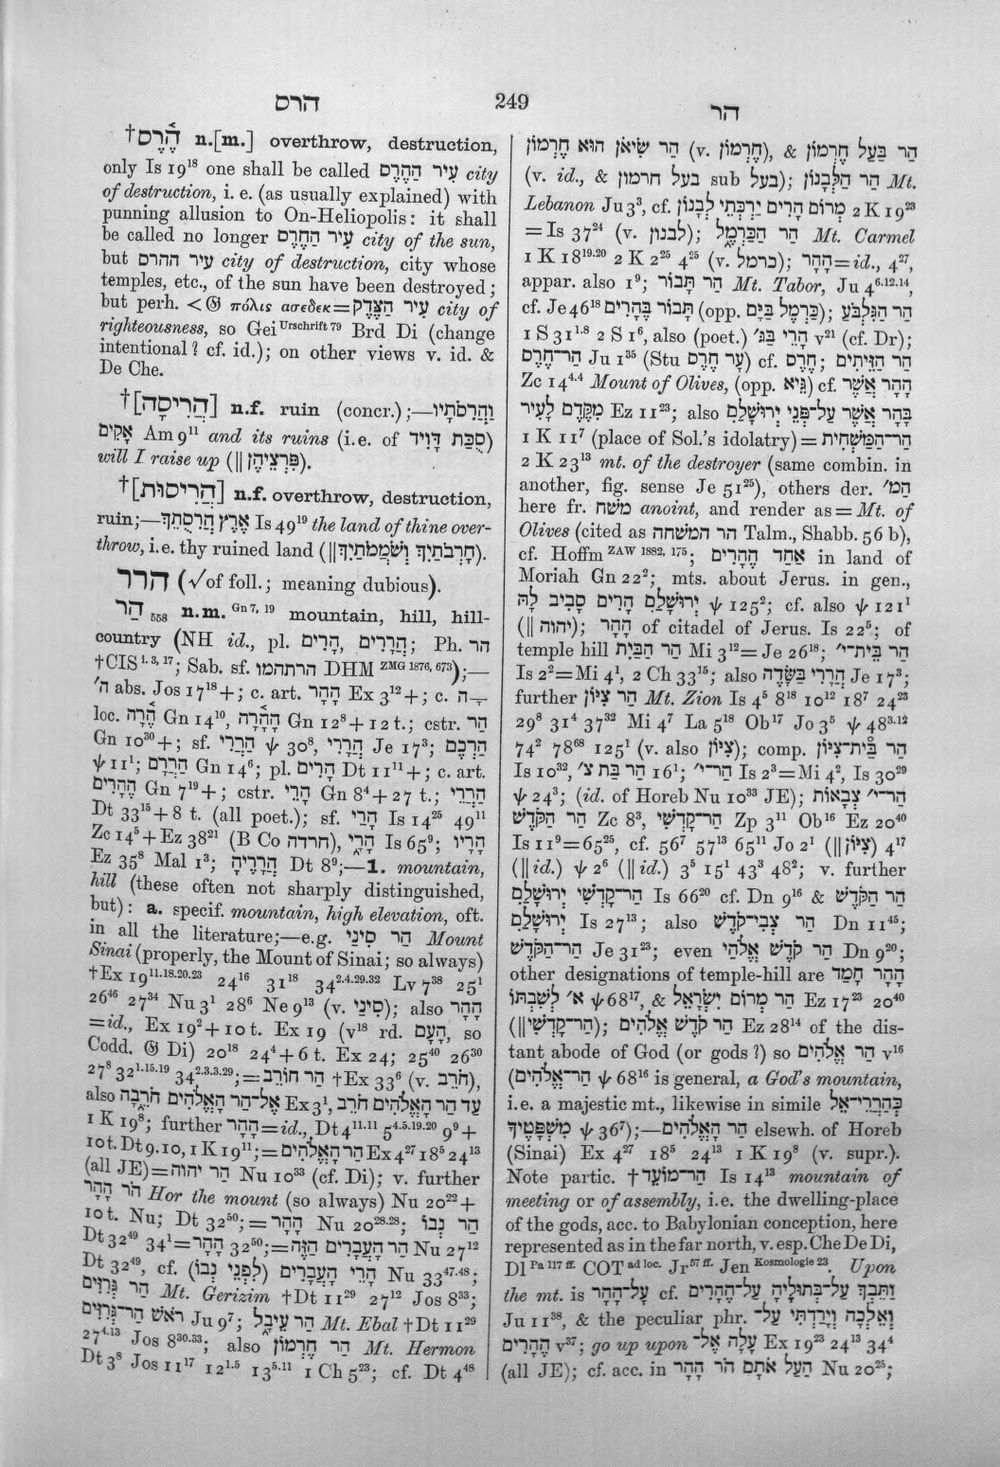 הרס
249
הר
†הֶ֫רֶס n.[m.] overthrow, destruction,
only Is 19¹⁸ one shall be called עִיר הַהֶרֶס city
of destruction, i. e. (as usually explained) with
punning allusion to On-Heliopolis: it shall
be called no longer עִיר הַחֶרֶס city of the sun,
but עיר ההרס city of destruction, city whose
temples, etc., of the sun have been destroyed;
but perh. < 𝔊 πόλις ασεδεκ=עִיר הַצֶּדֶק city of
righteousness, so Gei Urschrift 79 Brd Di (change
intentional? cf. id.); on other views v. id. &
De Che.
†[הֲרִיסָה] n.f. ruin (concr.);—וַהֲרִסֹתָיו
אָקִים Am 9¹¹ and its ruins (i.e. of סֻכַּת דָּוִיד)
will I raise up (‖ פִּרְצֵיהֶן).
†[הֲרִיסוּת] n.f. overthrow, destruction,
ruin;—אֶרֶץ הֲרִסֻתֵךְ Is 49¹⁹ the land of thine over-
throw, i.e. thy ruined land (‖ חָרְבֹתַיִךְ וְשֹׁמְמֹתַיִךְ).
הרר (√of foll.; meaning dubious).
הַר 558 n.m. Gn 7, 19 mountain, hill, hill-
country (NH id., pl. הָרִים, הֲרָרִים; Ph. הר
†CIS 1. 3, 17; Sab. sf. הרתהמו DHM ZMG 1876, 673);—
ה׳ abs. Jos 17¹⁸+; c. art. הָהָר Ex 3¹²+; c. ה ָ
loc. הֶ֫רָה Gn 14¹⁰, הָהָ֫רָה Gn 12⁸+12 t.; cstr. הַר
Gn 10³⁰+; sf. הַרֲרִי ψ 30⁸, הֲרָרִי Je 17³; הַרְכֶם
ψ 11¹; הַרֲרָם Gn 14⁶; pl. הָרִים Dt 11¹¹+; c. art.
הֶהָרִים Gn 7¹⁹+; cstr. הָרֵי Gn 8⁴+27 t.; הַרֲרֵי
Dt 33¹⁵+8 t. (all poet.); sf. הָרַי Is 14²⁵ 49¹¹
Zc 14⁵+Ez 38²¹ (B Co חרדה), הָרָי Is 65⁹; הָרָיו
Ez 35⁸ Mal 1³; הֲרָרֶיהָ Dt 8⁹;—1. mountain,
hill (these often not sharply distinguished,
but): a. specif. mountain, high elevation, oft.
in all the literature;—e.g. הַר סִינַי Mount
Sinai (properly, the Mount of Sinai; so always)
†Ex 19¹¹·¹⁸·²⁰·²³ 24¹⁶ 31¹⁸ 34²·⁴·²⁹·³² Lv 7³⁸ 25¹
26⁴⁶ 27³⁴ Nu 3¹ 28⁶ Ne 9¹³ (v. סִינַי); also הָהָר
=id., Ex 19²+10 t. Ex 19 (v¹⁸ rd. הָעָם, so
Codd. 𝔊 Di) 20¹⁸ 24⁴+6 t. Ex 24; 25⁴⁰ 26³⁰
27⁸ 32¹·¹⁵·¹⁹ 34²·³·³·²⁹; =הַר חוֹרֵב †Ex 33⁶ (v. חֹרֵב),
also אֶל־הַר הָאֱלֹהִים חֹרֵבָה Ex 3¹, עַד הַר הָאֱלֹהִים חֹרֵב
1 K 19⁸; further הָהָר=id., Dt 4¹¹·¹¹ 5⁴·⁵·¹⁹·²⁰ 9⁹+
10 t. Dt 9. 10, 1 K 19¹¹; =הַר הָאֱלֹהִים Ex 4²⁷ 18⁵ 24¹³
(all JE)=הַר יהוה Nu 10³³ (cf. Di); v. further
הֹר הָהָר Hor the mount (so always) Nu 20²²+
10 t. Nu; Dt 32⁵⁰; =הָהָר Nu 20²⁸·²⁸; הַר נְבוֹ
Dt 32⁴⁹ 34¹=הָהָר 32⁵⁰; =הַר הָעֲבָרִים הַזֶּה Nu 27¹²
Dt 32⁴⁹, cf. הָרֵי הָעֲבָרִים (לִפְנֵי נְבוֹ) Nu 33⁴⁷·⁴⁸;
הַר גְּרִזִים Mt. Gerizim †Dt 11²⁹ 27¹² Jos 8³³;
רֹאשׁ הַר־גְּרִזִים Ju 9⁷; הַר עֵיבָל Mt. Ebal †Dt 11²⁹
27⁴·¹³ Jos 8³⁰·³³; also הַר חֶרְמוֹן Mt. Hermon
Dt 3⁸ Jos 11¹⁷ 12¹·⁵ 13⁵·¹¹ 1 Ch 5²³; cf. Dt 4⁴⁸
הַר שִׂיאֹן הוּא חֶרְמוֹן (v. חֶרְמוֹן), & הַר בַּעַל חֶרְמוֹן
(v. id., & בעל חרמון sub בעל); הַר הַלְּבָנוֹן Mt.
Lebanon Ju 3³, cf. מְרוֹם הָרִים יַרְכְּתֵי לְבָנוֹן 2 K 19²³
=Is 37²⁴ (v. לבנון); הַר הַכַּרְמֶל Mt. Carmel
1 K 18¹⁹·²⁰ 2 K 2²⁵ 4²⁵ (v. כרמל); הָהָר=id., 4²⁷,
appar. also 1⁹; הַר תָּבוֹר Mt. Tabor, Ju 4⁶·¹²·¹⁴,
cf. Je 46¹⁸ תָּבוֹר בֶּהָרִים (opp. כַּרְמֶל בַּיָּם); הַר הַגִּלְבֹּעַ
1 S 31¹·⁸ 2 S 1⁶, also (poet.) הָרֵי בַגּ׳ v²¹ (cf. Dr);
הַר־חֶרֶס Ju 1³⁵ (Stu עָר חֶרֶס) cf. חֶרֶס; הַר הַזֵּיתִים
Zc 14⁴·⁴ Mount of Olives, (opp. גַּיְא) cf. הָהָר אֲשֶׁר
מִקֶּדֶם לָעִיר Ez 11²³; also בָּהָר אֲשֶׁר עַל־פְּנֵי יְרוּשָׁלַ͏ִם
1 K 11⁷ (place of Sol.'s idolatry)=הַר־הַמַּשְׁחִית
2 K 23¹³ mt. of the destroyer (same combin. in
another, fig. sense Je 51²⁵), others der. המ׳
here fr. משׁח anoint, and render as=Mt. of
Olives (cited as הר המשחה Talm., Shabb. 56 b),
cf. Hoffm ZAW 1882, 175; אַחַד הֶהָרִים in land of
Moriah Gn 22²; mts. about Jerus. in gen.,
יְרוּשָׁלַ͏ִם הָרִים סָבִיב לָהּ ψ 125²; cf. also ψ 121¹
(‖ יהוה); הָהָר of citadel of Jerus. Is 22⁵; of
temple hill הַר הַבַּיִת Mi 3¹²=Je 26¹⁸; הַר בֵּית־י׳
Is 2²=Mi 4¹, 2 Ch 33¹⁵; also הֲרָרִי בַּשָּׂדֶה Je 17³;
further הַר צִיּוֹן Mt. Zion Is 4⁵ 8¹⁸ 10¹² 18⁷ 24²³
29⁸ 31⁴ 37³² Mi 4⁷ La 5¹⁸ Ob¹⁷ Jo 3⁵ ψ 48³·¹²
74² 78⁶⁸ 125¹ (v. also צִיּוֹן); comp. הַר בַּת־צִיּוֹן
Is 10³², הַר בַּת צ׳ 16¹; הַר־י׳ Is 2³=Mi 4², Is 30²⁹
ψ 24³; (id. of Horeb Nu 10³³ JE); הַר־י׳ צְבָאוֹת
הַר הַקֹּדֶשׁ Zc 8³, הַר־קָדְשִׁי Zp 3¹¹ Ob¹⁶ Ez 20⁴⁰
Is 11⁹=65²⁵, cf. 56⁷ 57¹³ 65¹¹ Jo 2¹ (‖ צִיּוֹן) 4¹⁷
(‖ id.) ψ 2⁶ (‖ id.) 3⁵ 15¹ 43³ 48²; v. further
הַר־קָדְשִׁי יְרוּשָׁלַ͏ִם Is 66²⁰ cf. Dn 9¹⁶ & הַר הַקֹּדֶשׁ
יְרוּשָׁלַ͏ִם Is 27¹³; also הַר צְבִי־קֹדֶשׁ Dn 11⁴⁵;
הַר־הַקֹּדֶשׁ Je 31²³; even הַר קֹדֶשׁ אֱלֹהַי Dn 9²⁰;
other designations of temple-hill are הָהָר חָמַד
א׳ לְשִׁבְתּוֹ ψ 68¹⁷, & הַר מְרוֹם יִשְׂרָאֵל Ez 17²³ 20⁴⁰
(‖ הַר־קָדְשִׁי); הַר קֹדֶשׁ אֱלֹהִים Ez 28¹⁴ of the dis-
tant abode of God (or gods?) so הַר אֱלֹהִים v¹⁶
(הַר־אֱלֹהִים ψ 68¹⁶ is general, a God's mountain,
i.e. a majestic mt., likewise in simile כְּהַרְרֵי־אֵל
מִשְׁפָּטֶיךָ ψ 36⁷);—הַר הָאֱלֹהִים elsewh. of Horeb
(Sinai) Ex 4²⁷ 18⁵ 24¹³ 1 K 19⁸ (v. supr.).
Note partic. †הַר־מוֹעֵד Is 14¹³ mountain of
meeting or of assembly, i.e. the dwelling-place
of the gods, acc. to Babylonian conception, here
represented as in the far north, v. esp. Che De Di,
Dl Pa 117 ff. COT ad loc. Jr 57 ff. Jen Kosmologie 23. Upon
the mt. is עַל־הָהָר cf. וַתֵּבְךְּ עַל־בְּתוּלֶיהָ עַל־הֶהָרִים
Ju 11³⁸, & the peculiar phr. וְאֵלְכָה וְיָרַדְתִּי עַל־
הֶהָרִים v³⁷; go up upon עָלָה אֶל־ Ex 19²³ 24¹³ 34⁴
(all JE); cf. acc. in הַעַל אֹתָם הֹר הָהָר Nu 20²⁵;